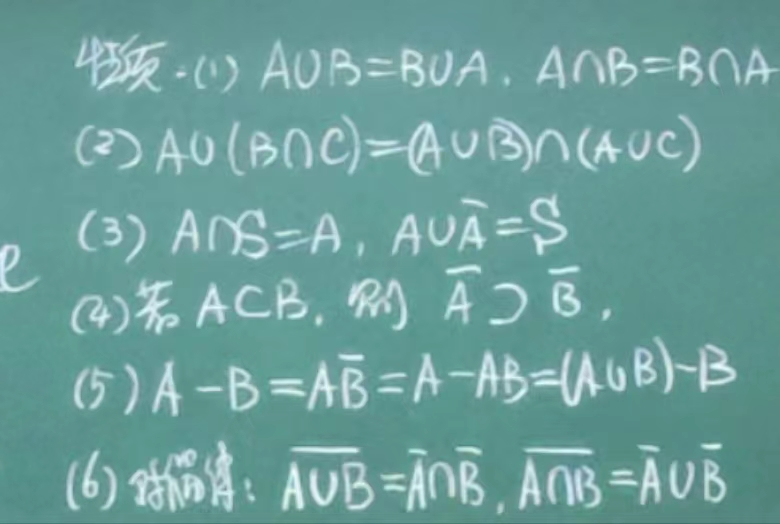 (1) A∪B=B∪A, A∩B=B∩A
(2) A∪(B∩C)=(A∪B)∩(A∪C)
(3) A∩S=A, A∪A̅=S
e
(4)若 A⊂B, 则 A̅⊃B̅,
(5) A-B=AB̅=A-AB=(A∪B)-B
(6) 对偶律: \overline{A∪B}=A̅∩B̅, \overline{A∩B}=A̅∪B̅